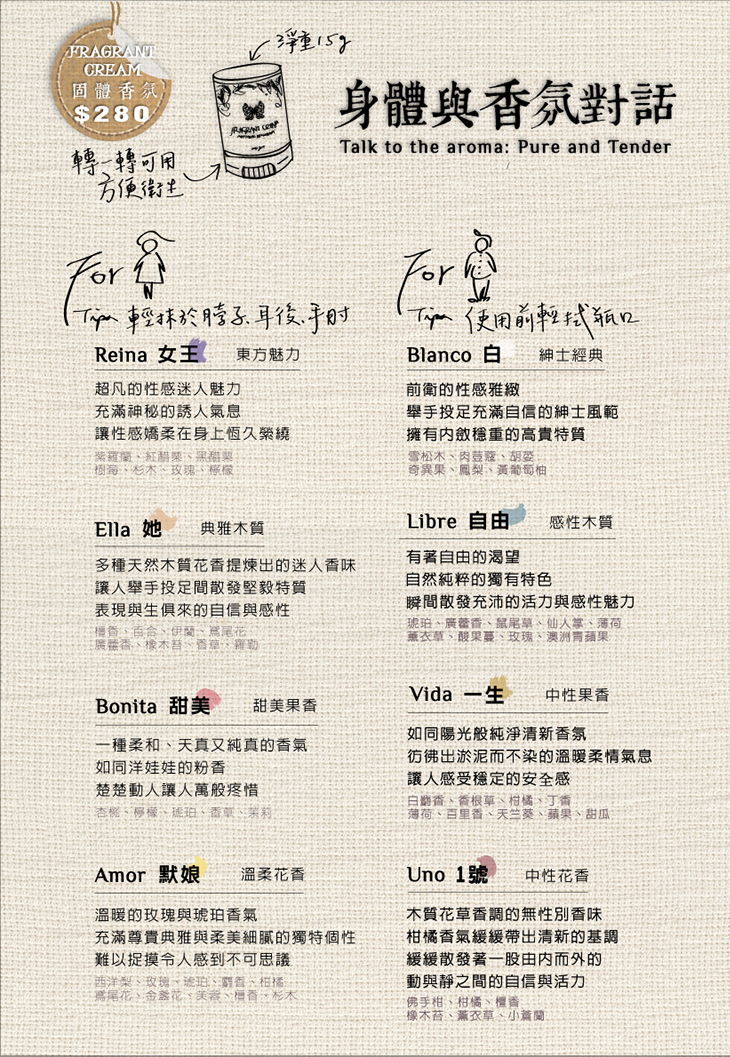 FRAGRANT
CREAM
固體香氛
$280
淨重15g
FRAGRANT CREAM
轉一轉可用
方便衛生
身體與香氛對話
Talk to the aroma: Pure and Tender
For
Tips 輕抹於脖子、耳後、手肘
Reina 女王 東方魅力
超凡的性感迷人魅力
充滿神秘的誘人氣息
讓性感嬌柔在身上恆久縈繞
紫羅蘭、紅醋栗、黑醋栗
樹海、杉木、玫瑰、檸檬
Ella 她 典雅木質
多種天然木質花香提煉出的迷人香味
讓人舉手投足間散發堅毅特質
表現與生俱來的自信與感性
檀香、百合、伊蘭、鳶尾花
廣藿香、橡木苔、香草、羅勒
Bonita 甜美 甜美果香
一種柔和、天真又純真的香氣
如同洋娃娃的粉香
楚楚動人讓人萬般疼惜
杏桃、檸檬、琥珀、香草、茉莉
Amor 默娘 溫柔花香
溫暖的玫瑰與琥珀香氣
充滿尊貴典雅與柔美細膩的獨特個性
難以捉摸令人感到不可思議
西洋梨、玫瑰、琥珀、麝香、柑橘
鳶尾花、金盞花、芙蓉、檀香、杉木
For
Tips 使用前輕拭瓶口
Blanco 白 紳士經典
前衛的性感雅緻
舉手投足充滿自信的紳士風範
擁有內斂穩重的高貴特質
雪松木、肉荳蔻、胡荽
奇異果、鳳梨、黃葡萄柚
Libre 自由 感性木質
有著自由的渴望
自然純粹的獨有特色
瞬間散發充沛的活力與感性魅力
琥珀、廣藿香、鼠尾草、仙人掌、薄荷
薰衣草、酸果蔓、玫瑰、澳洲青蘋果
Vida 一生 中性果香
如同陽光般純淨清新香氛
彷彿出淤泥而不染的溫暖柔情氣息
讓人感受穩定的安全感
白麝香、香根草、柑橘、丁香
薄荷、百里香、天竺葵、蘋果、甜瓜
Uno 1號 中性花香
木質花草香調的無性別香味
柑橘香氣緩緩帶出清新的基調
緩緩散發著一股由內而外的
動與靜之間的自信與活力
佛手柑、柑橘、檀香
橡木苔、薰衣草、小蒼蘭